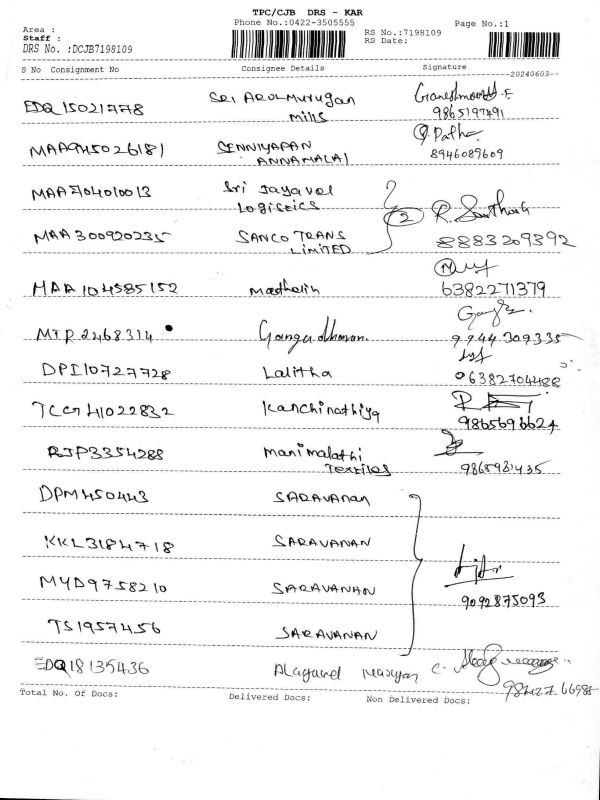 TPC/CJB DRS - KAR
Phone No.:0422-3505555 Page No.:1
Area :
Staff :
DRS No. :DCJB7198109
RS No.:7198109
RS Date:
S No Consignment No Consignee Details Signature
--20240603--
EDQ15021778 Sri Arulmurugan Mills 9865197491
MAA945026181 SENNIYAPAN ANNAMALAI 8946089609
MAA704010013 Sri Jayavel Logistics
MAA300920235 SANCO TRANS LIMITED 2 R. Santhosh 8883209392
MAA104585152 6382271379
MTP2468314 Gangadharan 9944309335
DPI10727728 Lalitha 06382704488
TCG41022832 Kanchinathiya 9865698624
RJP3354288 Manimalathi Textiles 9865981435
DPM450443 SARAVANAN
KKL3184718 SARAVANAN
MYD9758210 SARAVANAN 9092875093
TS1957456 SARAVANAN
EDQ18135436 Alagavel
Total No. Of Docs: Delivered Docs: Non Delivered Docs: